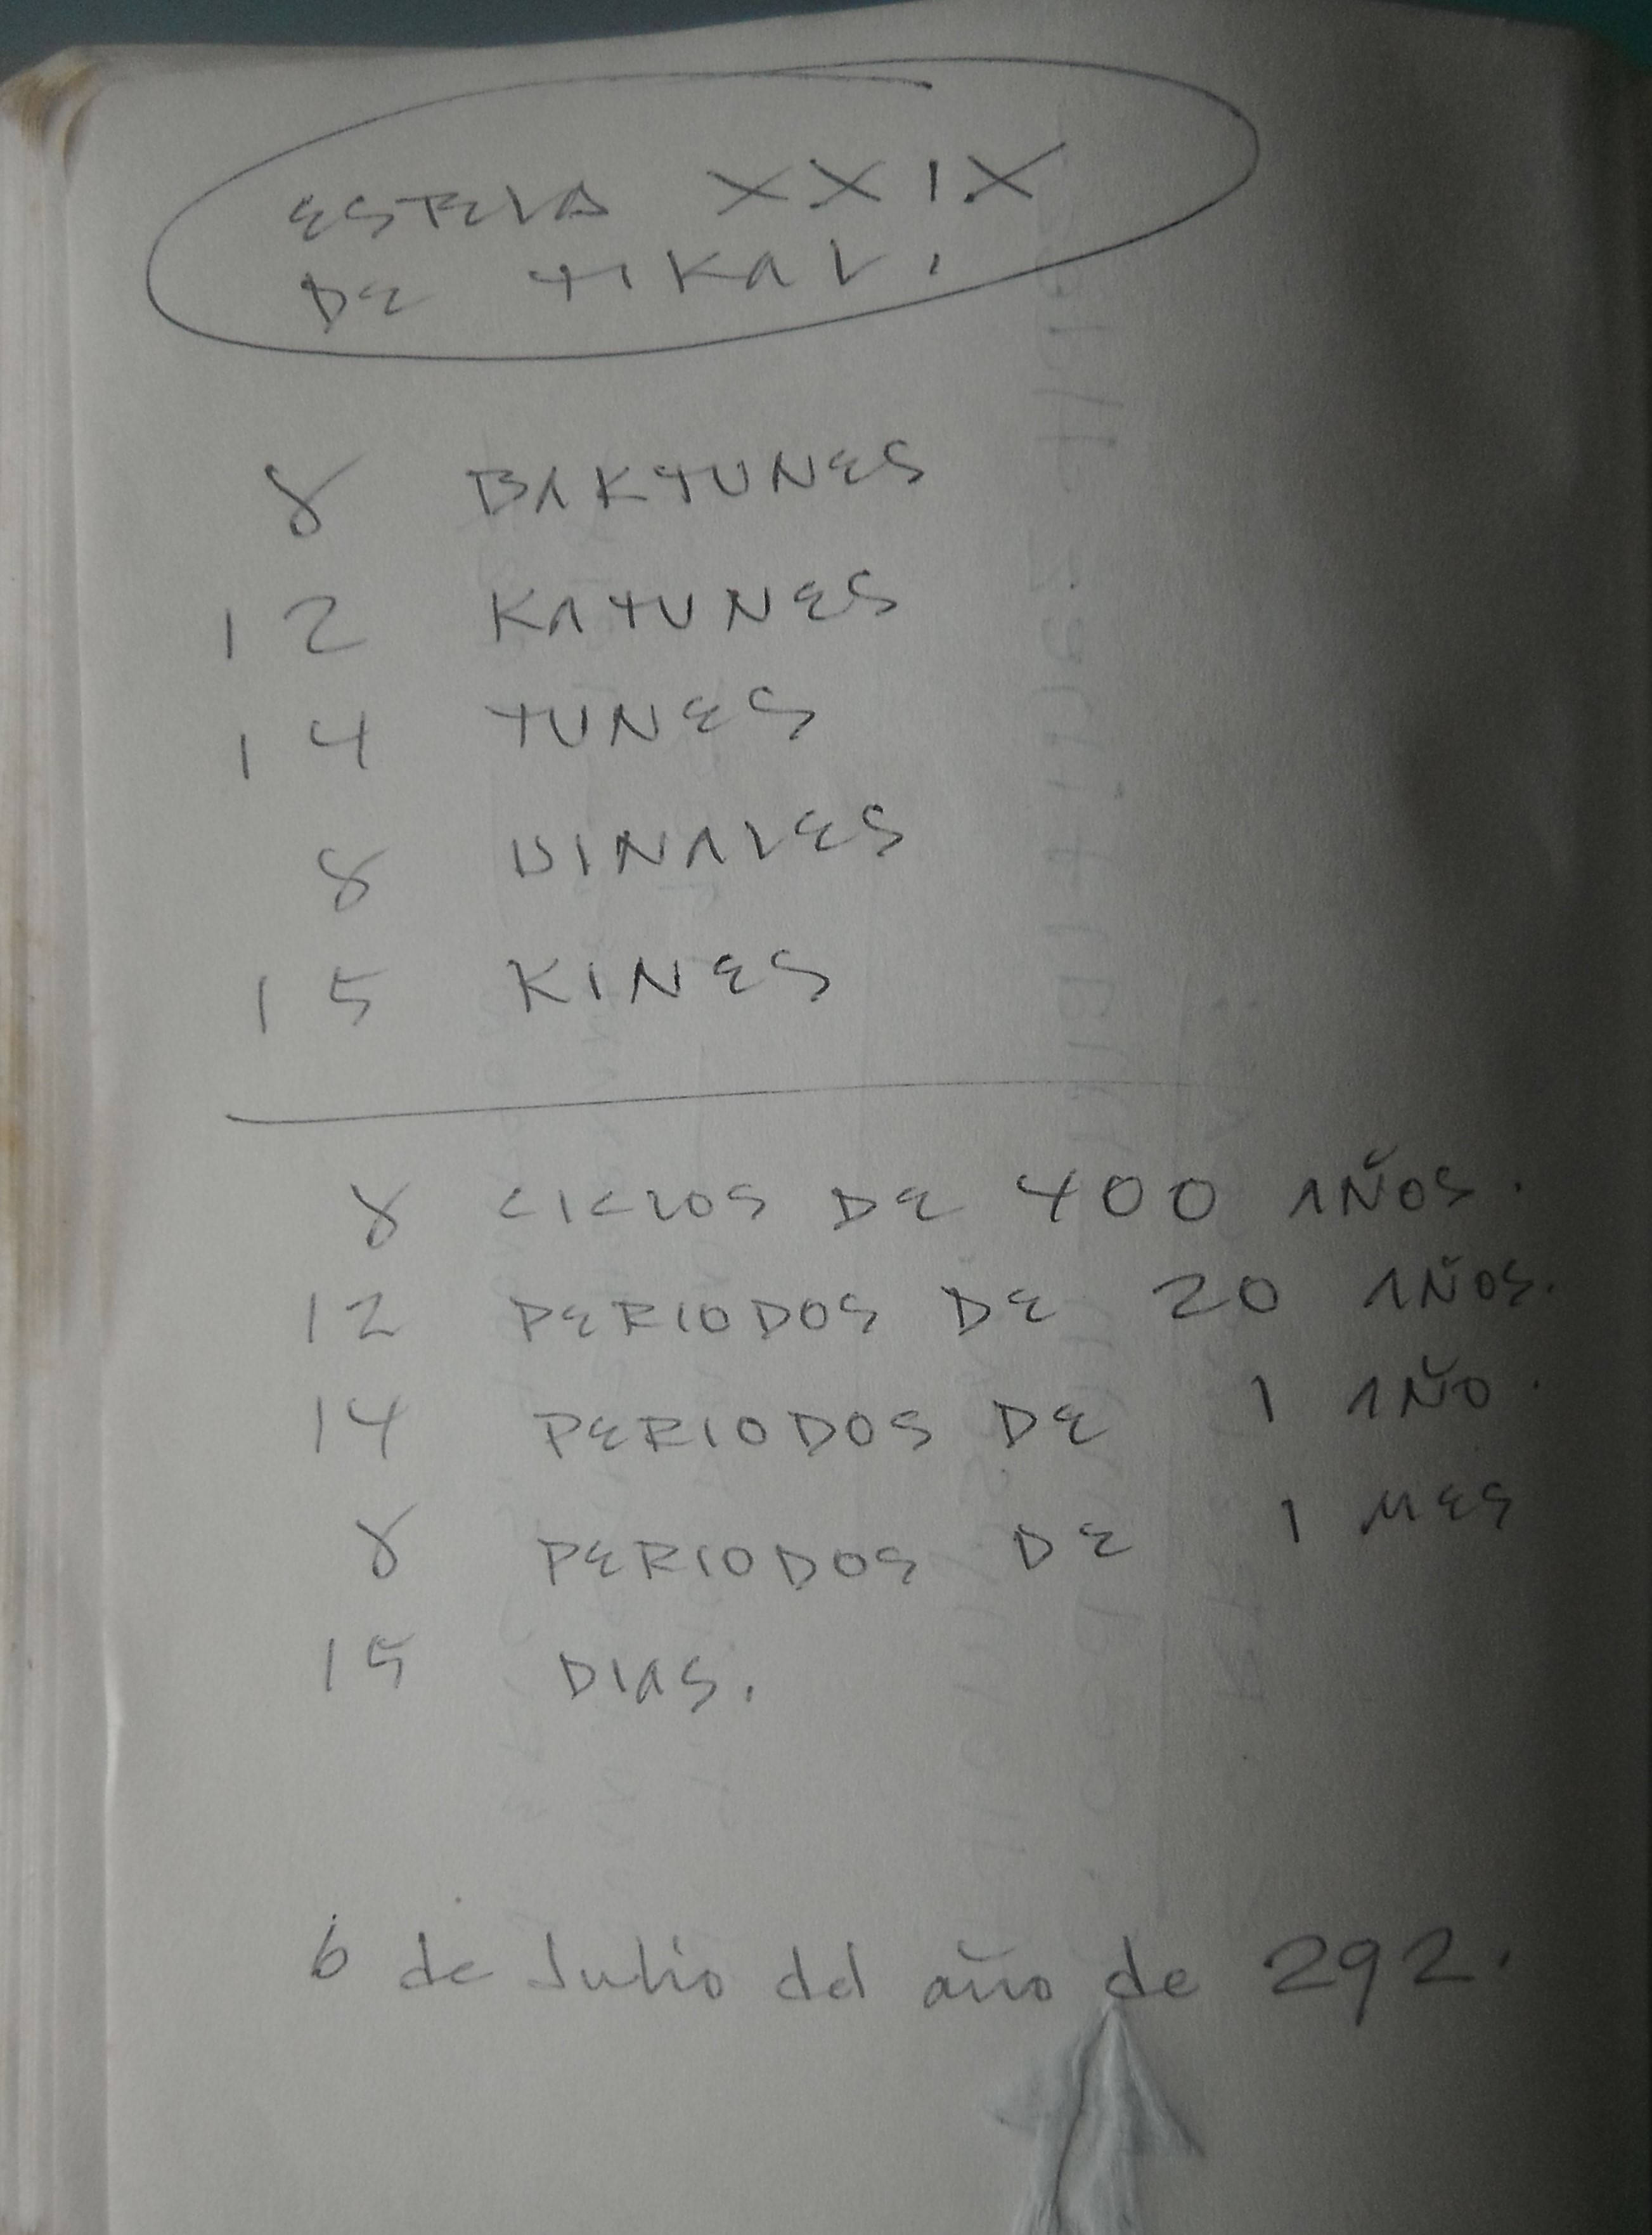 ESTELA XXIX
DE TIKAL.
8 BAKTUNES
12 KATUNES
14 TUNES
8 UINALES
15 KINES
8 CICLOS DE 400 AÑOS.
12 PERIODOS DE 20 AÑOS.
14 PERIODOS DE 1 AÑO.
8 PERIODOS DE 1 MES
15 DIAS.
6 de Julio del año de 292.